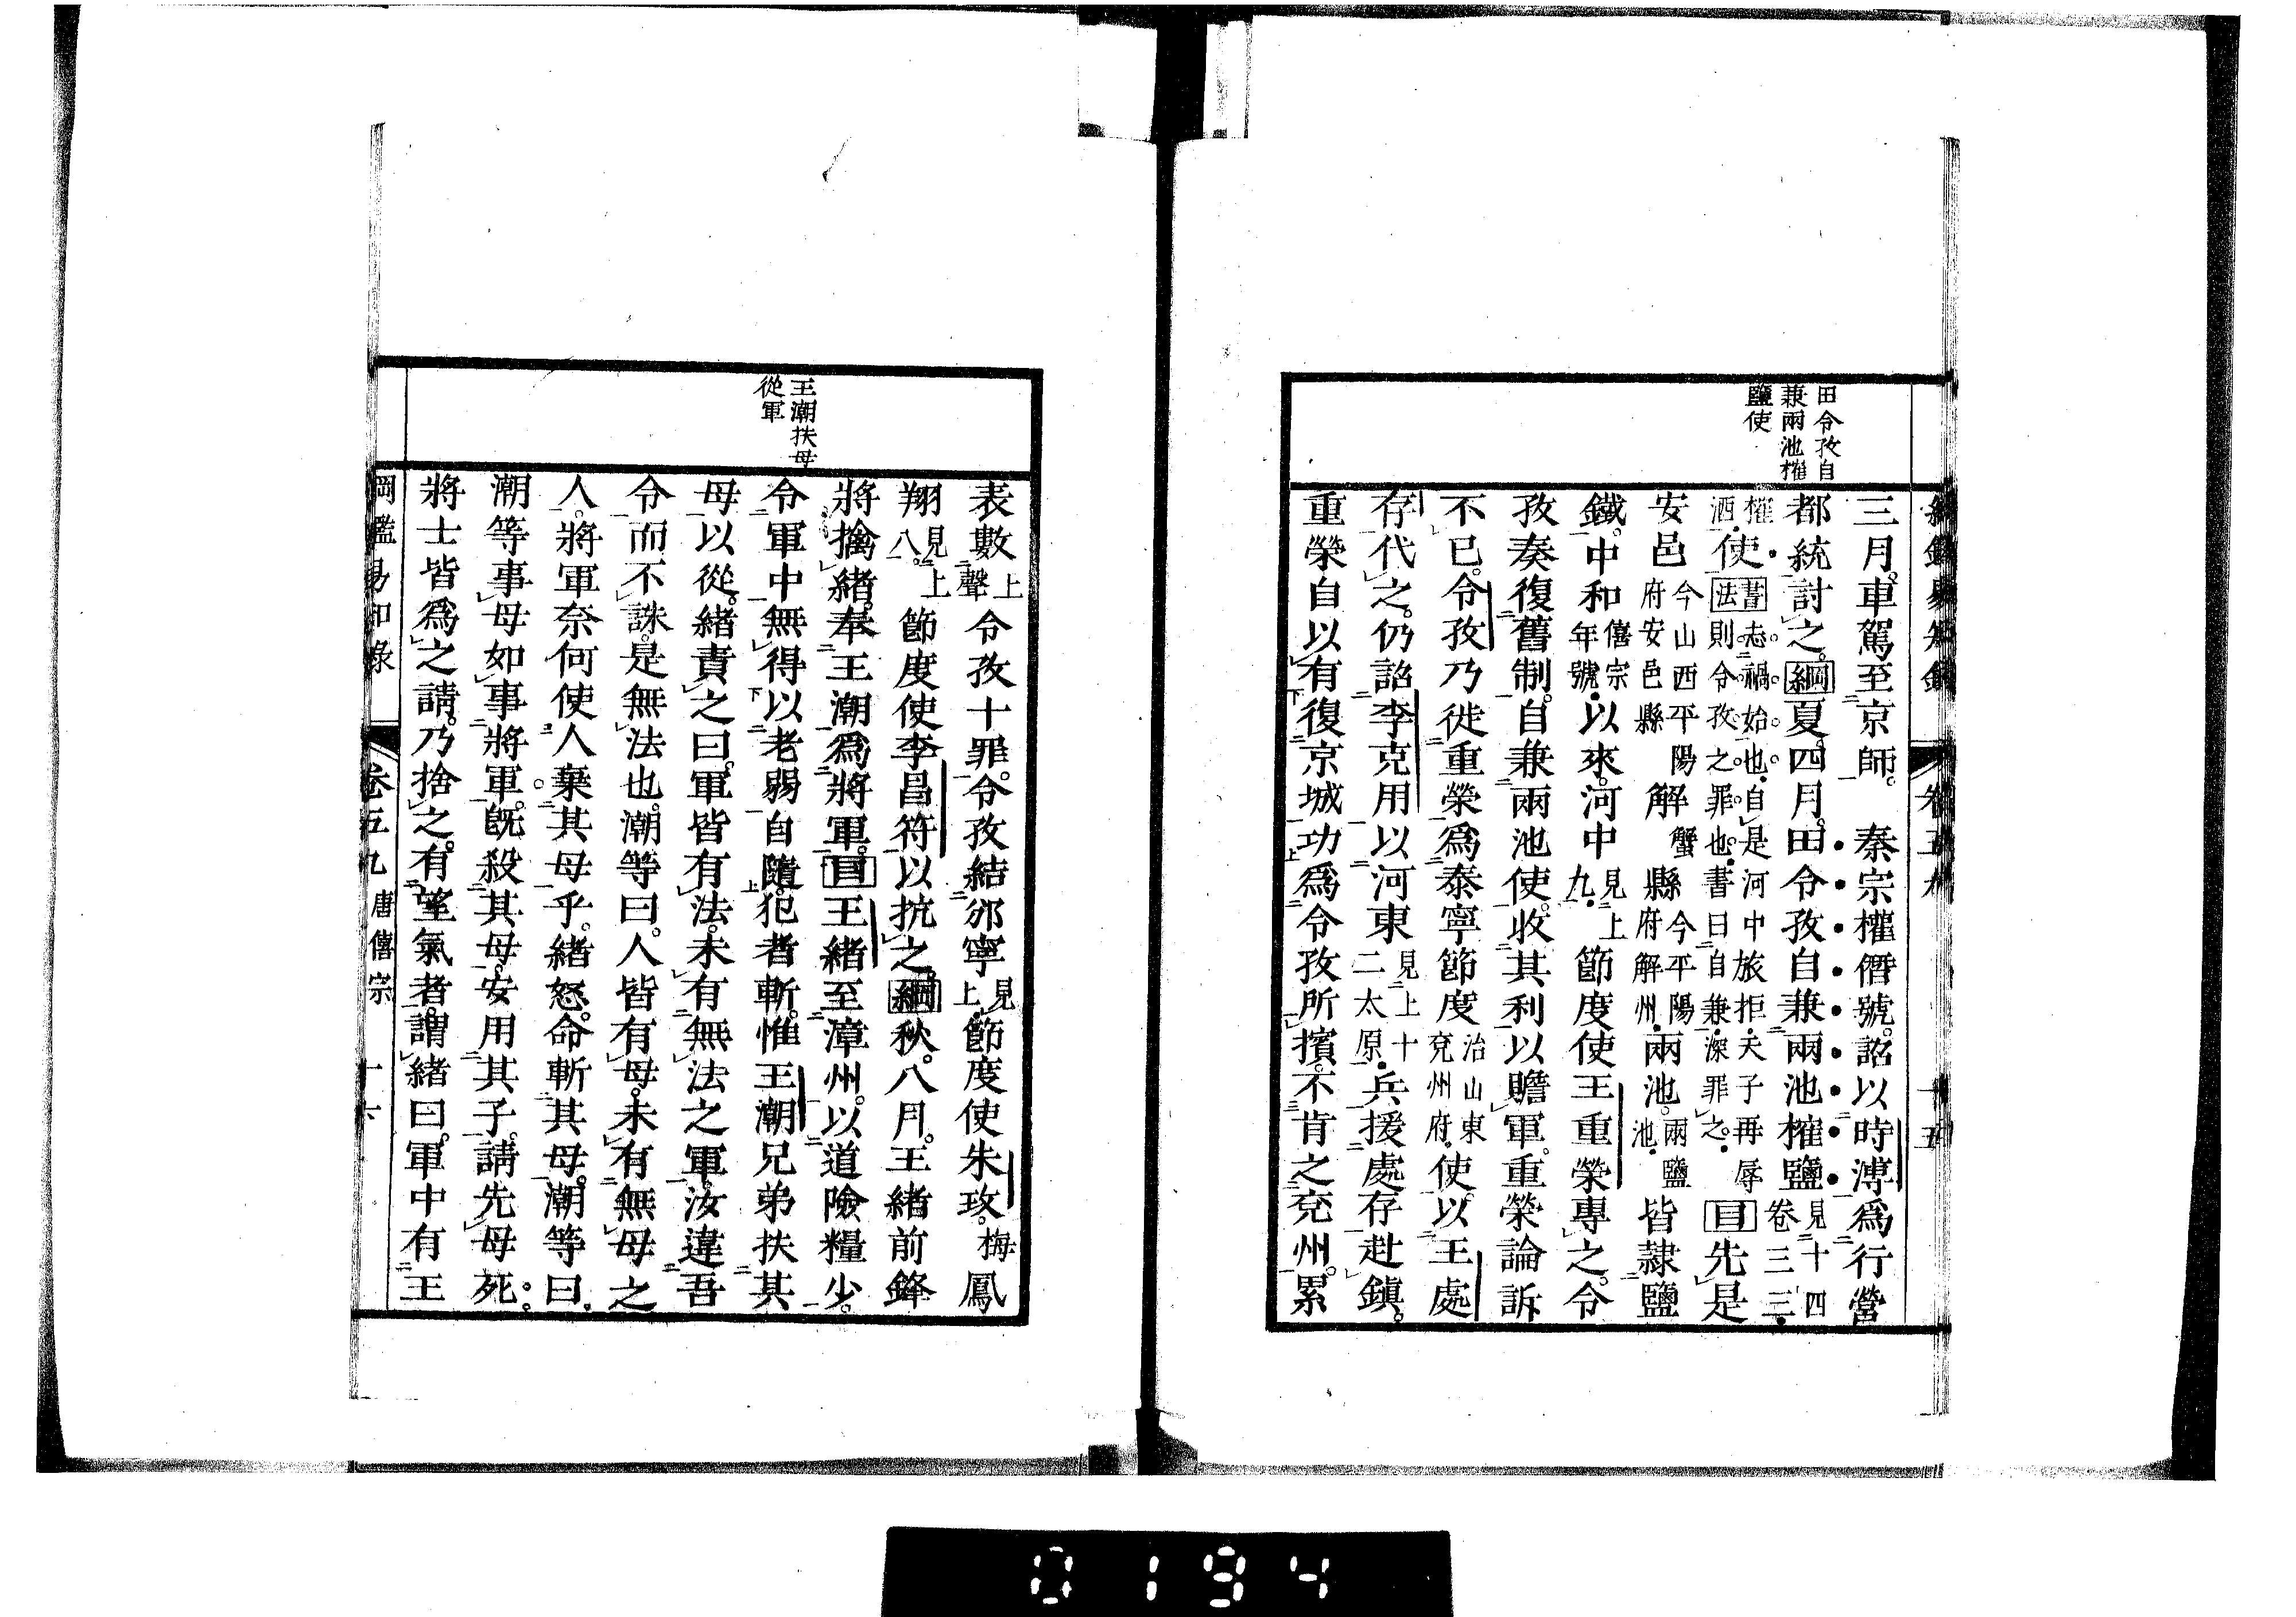 田令孜自
兼兩池榷
鹽使
三月。車駕至京師。　秦宗權僭號。詔以時溥爲行營
都統討之。綱夏。四月。田令孜自兼兩池榷鹽見十四卷三三
榷酒使書法書志禍始也。自是河中旅拒。天子再辱則令孜之罪也。書曰自兼。深罪之。目先是
安邑今山西平陽府安邑縣解蟹縣今平陽府解州兩池。兩鹽池皆隷鹽
鐵。中和僖宗年號以來。河中見上九節度使王重榮專之。令
孜奏復舊制。自兼兩池使。收其利以贍軍。重榮論訴
不已。令孜乃徙重榮爲泰寧節度治山東兗州府使。以王處
存代之。仍詔李克用以河東見上十二太原兵援處存赴鎭。
重榮自以有復京城功。爲令孜所擯。不肯之兗州。累
王潮扶母
從軍
表數上聲令孜十罪。令孜結邠寧見上節度使朱玫。梅鳳
翔見上八節度使李昌符以抗之。綱秋。八月。王緒前鋒
將擒緒。奉王潮爲將軍。目王緒至漳州。以道險糧少。
令軍中無得以老弱自隨。犯者斬。惟王潮兄弟扶其
母以從。緒責之曰。軍皆有法。未有無法之軍。汝違吾
令而不誅。是無法也。潮等曰。人皆有母。未有無母之
人。將軍奈何使人棄其母乎。緒怒。命斬其母。潮等曰。
潮等事母如事將軍。旣殺其母。安用其子。請先母死。
將士皆爲之請。乃捨之。有望氣者。謂緒曰。軍中有王
綱鑑易知錄　卷五九　唐僖宗　十六